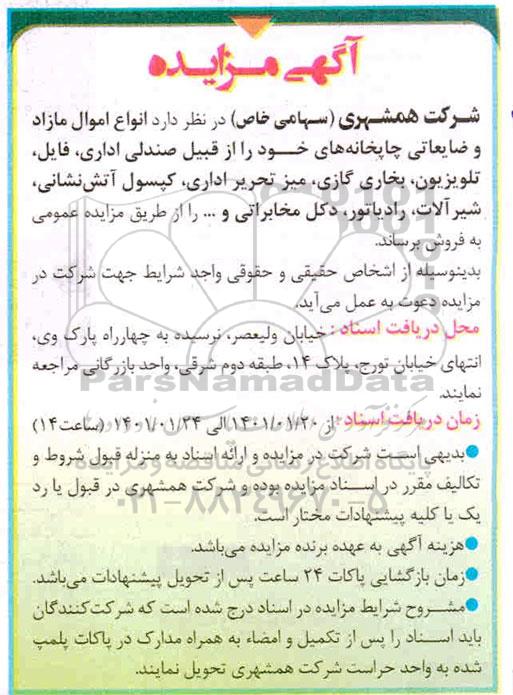 آگهی مزایده
شرکت همشهری (سهامی خاص) در نظر دارد انواع اموال مازاد
و ضایعاتی چاپخانه‌های خود را از قبیل صندلی اداری، فایل،
تلویزیون، بخاری گازی، میز تحریر اداری، کپسول آتش‌نشانی،
شیرآلات، رادیاتور، دکل مخابراتی و ... را از طریق مزایده عمومی
به فروش برساند.
بدینوسیله از اشخاص حقیقی و حقوقی واجد شرایط جهت شرکت در
مزایده دعوت به عمل می‌آید.
محل دریافت اسناد : خیابان ولیعصر، نرسیده به چهارراه پارک وی،
انتهای خیابان تورج، پلاک ۱۴، طبقه دوم شرقی، واحد بازرگانی مراجعه
ParsNamadData
نمایند.
زمان دریافت اسناد: از ۱۴۰۱/۰۱/۲۰ الی ۱۴۰۱/۰۱/۲۴ (ساعت۱۴)
●بدیهی است شرکت در مزایده و ارائه اسناد به منزله قبول شروط و
پایگاه اطلاع رسانی مناقصه و مزایده
تکالیف مقرر در اسناد مزایده بوده و شرکت همشهری در قبول یا رد
۰۲۱-۸۸۳۴۹۶۷۰-۵
یک یا کلیه پیشنهادات مختار است.
●هزینه آگهی به عهده برنده مزایده می‌باشد.
●زمان بازگشایی پاکات ۲۴ ساعت پس از تحویل پیشنهادات می‌باشد.
●مشروح شرایط مزایده در اسناد درج شده است که شرکت‌کنندگان
باید اسناد را پس از تکمیل و امضاء به همراه مدارک در پاکات پلمپ
شده به واحد حراست شرکت همشهری تحویل نمایند.